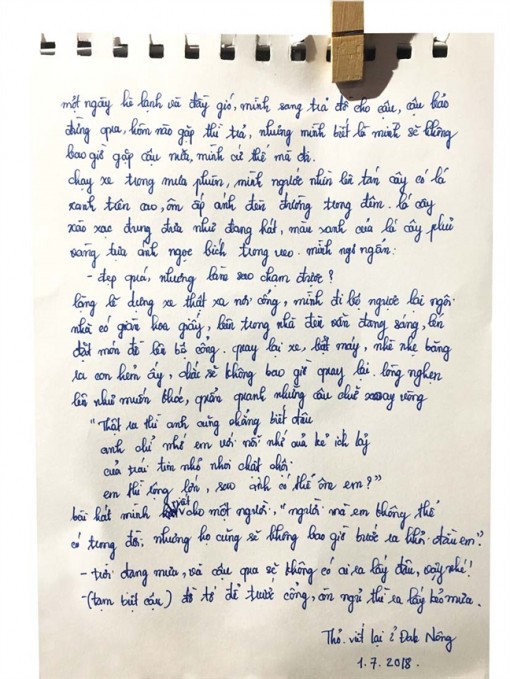 một ngày hè lạnh và đầy gió, mình sang trả đồ cho cậu, cậu bảo
đừng qua, hôm nào gặp thì trả, nhưng mình biết là mình sẽ không
bao giờ gặp cậu nữa, mình cứ thế mà đi.
chạy xe trong mưa phùn, mình ngước nhìn lên tán cây có lá
xanh trên cao, ôm ấp ánh đèn đường trong đêm. lá cây
xào xạc đung đưa như đang hát, màu xanh của lá cây phủ
vàng tựa ánh ngọc bích trong veo. mình ngơ ngẩn:
- đẹp quá, nhưng làm sao chạm được?
lặng lẽ dừng xe thật xa nơi cổng, mình đi bộ ngược lại ngôi
nhà có giàn hoa giấy, bên trong nhà đèn vẫn đang sáng, lén
đặt món đồ lên bệ cổng. quay lại xe, bật máy, nhè nhẹ băng
ra con hẻm ấy, chắc sẽ không bao giờ quay lại. lòng nghẹn
lên như muốn khóc, quẩn quanh những câu chữ xoay vòng
"Thật ra thì anh cũng chẳng biết đâu
anh chỉ nhớ em với nỗi nhớ của kẻ ích kỷ
của trái tim nhỏ nhoi chật chội
em thì rộng lớn, sao anh có thể ôm em?"
bài hát mình viết cho một người, "người mà em không thể
có trong đời. nhưng họ cũng sẽ không bao giờ bước ra khỏi đầu em".
- trời đang mưa, và cậu qua sẽ không có ai ra lấy đâu, vậy nhé!
- (tạm biệt cậu) đồ tớ để trước cổng, còn ngủ thì ra lấy kẻo mưa.
Thỏ. viết lại ở Đak Nông
1.7.2018.